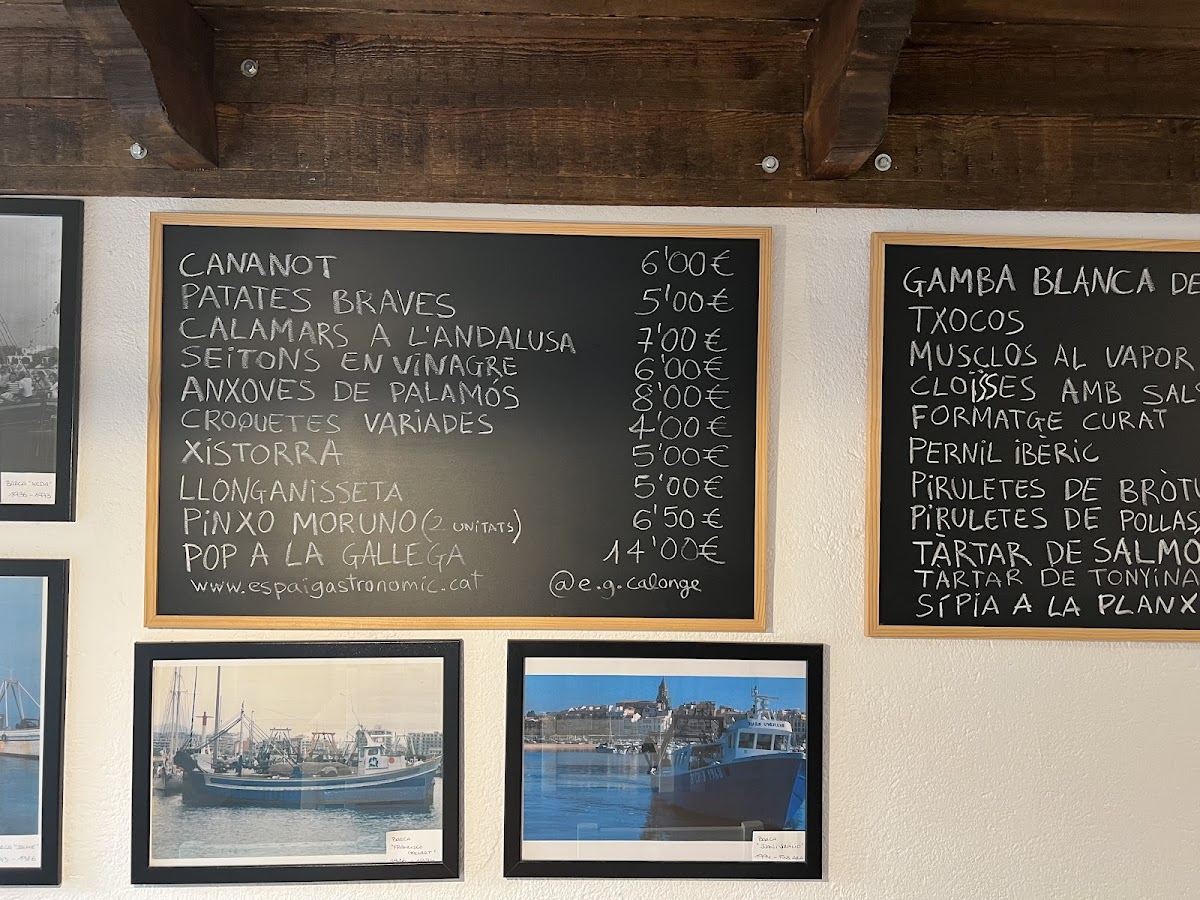 CANANOT 6'00€
PATATES BRAVES 5'00€
CALAMARS A L'ANDALUSA 7'00€
SEITONS EN VINAGRE 6'00€
ANXOVES DE PALAMÓS 8'00€
CROQUETES VARIADES 4'00€
XISTORRA 5'00€
LLONGANISSETA 5'00€
PINXO MORUNO (2 UNITATS) 6'50€
POP A LA GALLEGA 14'00€
www.espaigastronomic.cat @e.g.calonge
GAMBA BLANCA DE
TXOCOS
MUSCLOS AL VAPOR
CLOÏSSES AMB SALS
FORMATGE CURAT
PERNIL IBÈRIC
PIRULETES DE BRÒTU
PIRULETES DE POLLAS
TÀRTAR DE SALMÓ
TARTAR DE TONYINA
SÍPIA A LA PLANX
BARCA
1936-1993
BARCA
BARCA